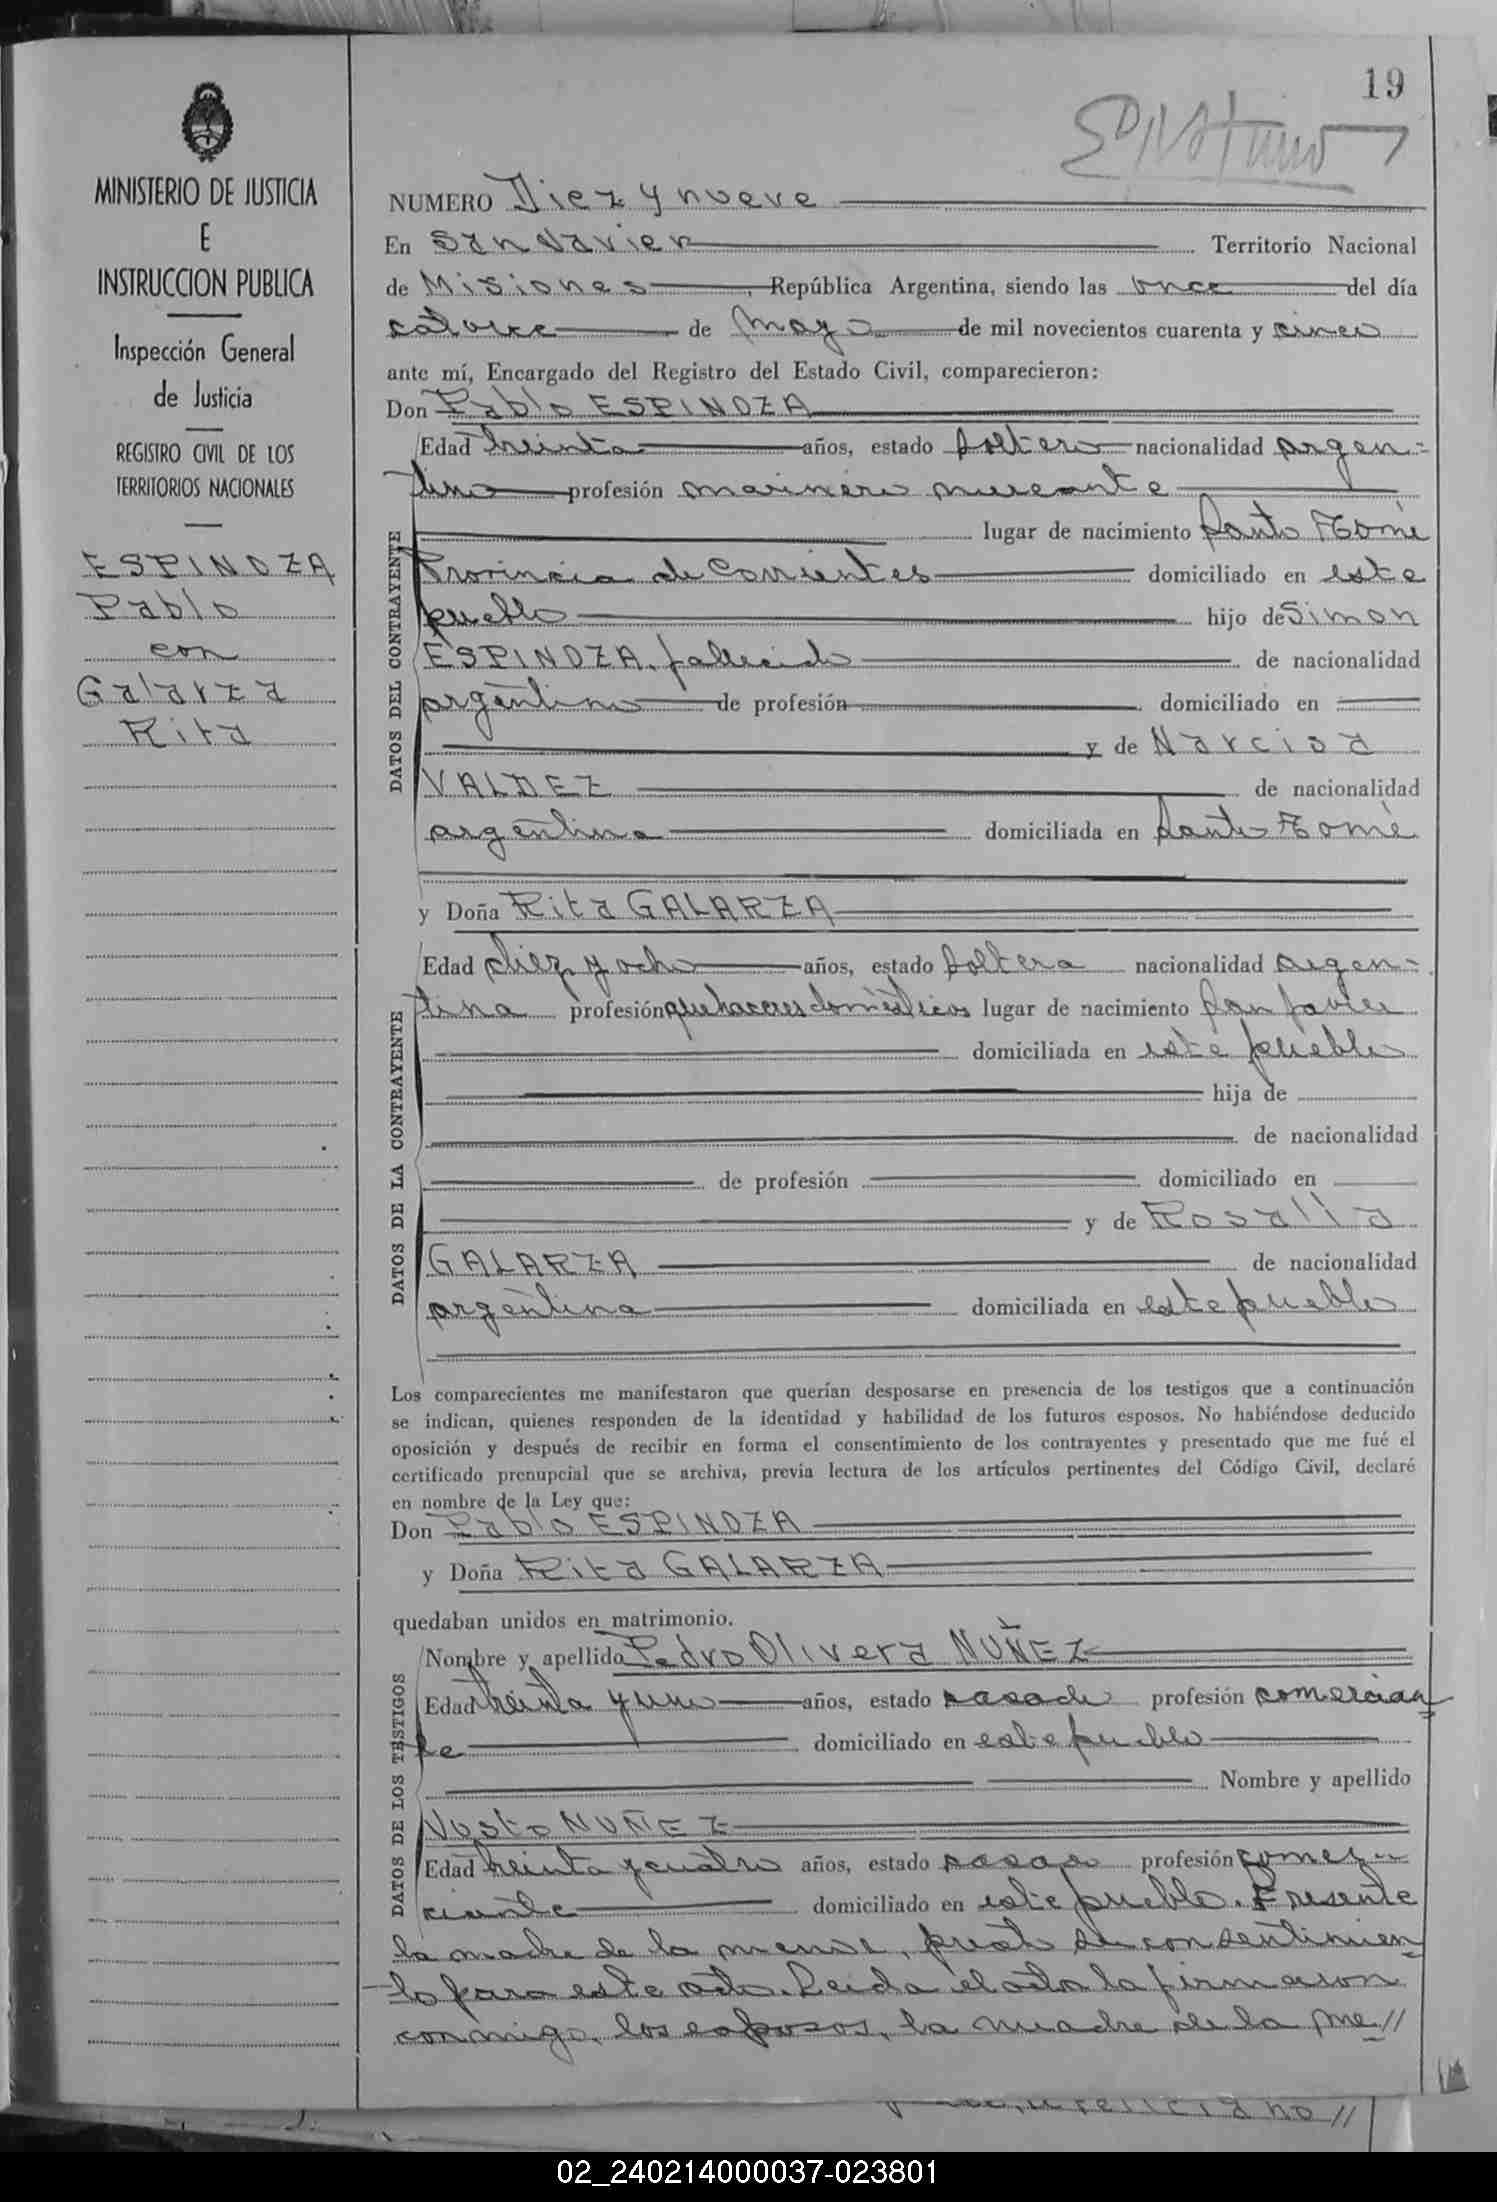 19
MINISTERIO DE JUSTICIA
E
INSTRUCCION PUBLICA
Inspección General
de Justicia
REGISTRO CIVIL DE LOS
TERRITORIOS NACIONALES
ESPINOZA
Pablo
con
Galarza
Rita
NUMERO Diez y nueve
En San Javier Territorio Nacional
de Misiones, República Argentina, siendo las once del día
catorce de Mayo de mil novecientos cuarenta y cinco
ante mí, Encargado del Registro del Estado Civil, comparecieron:
Don Pablo ESPINOZA
DATOS DEL CONTRAYENTE
Edad treinta años, estado soltero nacionalidad argen-
tino profesión marinero mercante
lugar de nacimiento Santo Tomé
Provincia de Corrientes domiciliado en este
pueblo hijo de Simon
ESPINOZA, fallecido de nacionalidad
argentino de profesión domiciliado en
y de Narcisa
VALDEZ de nacionalidad
argentina domiciliada en Santo Tomé
y Doña Rita GALARZA
DATOS DE LA CONTRAYENTE
Edad diez y ocho años, estado soltera nacionalidad argen-
tina profesión quehaceres domésticos lugar de nacimiento San Javier
domiciliada en este pueblo
hija de
de nacionalidad
de profesión domiciliado en
y de Rosalía
GALARZA de nacionalidad
argentina domiciliada en este pueblo
Los comparecientes me manifestaron que querían desposarse en presencia de los testigos que a continuación
se indican, quienes responden de la identidad y habilidad de los futuros esposos. No habiéndose deducido
oposición y después de recibir en forma el consentimiento de los contrayentes y presentado que me fué el
certificado prenupcial que se archiva, previa lectura de los artículos pertinentes del Código Civil, declaré
en nombre de la Ley que:
Don Pablo ESPINOZA
y Doña Rita GALARZA
quedaban unidos en matrimonio.
DATOS DE LOS TESTIGOS
Nombre y apellido Pedro Olivera NUÑEZ
Edad treinta y uno años, estado casado profesión comercian
te domiciliado en este pueblo
Nombre y apellido
Justo NUÑEZ
Edad treinta y cuatro años, estado casado profesión comer-
ciante domiciliado en este pueblo. Presente
la madre de la menor, prestó su consentimien
to para este acto. Leida el acta la firmaron
conmigo, los esposos, la madre de la me//
02_240214000037-023801